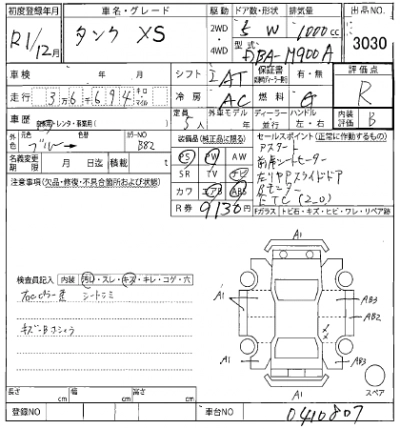 初度登録年月 車名・グレード 駆動 ドア数・形状 排気量 出品NO.
R1/12月 タンク XS 2WD 4WD 5 W 1000cc 3030
型式 DBA-M900A
車検 年 月 シフト IAT 保証書 有・無 評価点
走行 3万6千694 キロ マイル 冷房 AC 燃料 G R
車歴 定員 外車モデル ディーラー ハンドル 内装評価
5人 年 並行 左・右 B
外色 元色 ブルー 色替 カラーNO B82
装備品(純正品に限る) セールスポイント(正常に作動するもの)
名義変更期限 月 日迄 積載 t
PS PW AW
SR TV ナビ
カワ エアB ABS
R券 9130円
Bモニター
ETC(2.0)
注意事項(欠品・修復・不具合箇所および状態)
Fガラス トビ石・キズ・ヒビ・ワレ・リペア跡
A1
検査員記入 内装 汚れ・スレ・キズ・キレ・コゲ・穴
シートシミ
A1 AB3
AB2
A1 AB3
A1
スペア
長さ cm 幅 cm 高さ cm
登録NO 車台NO 0410807